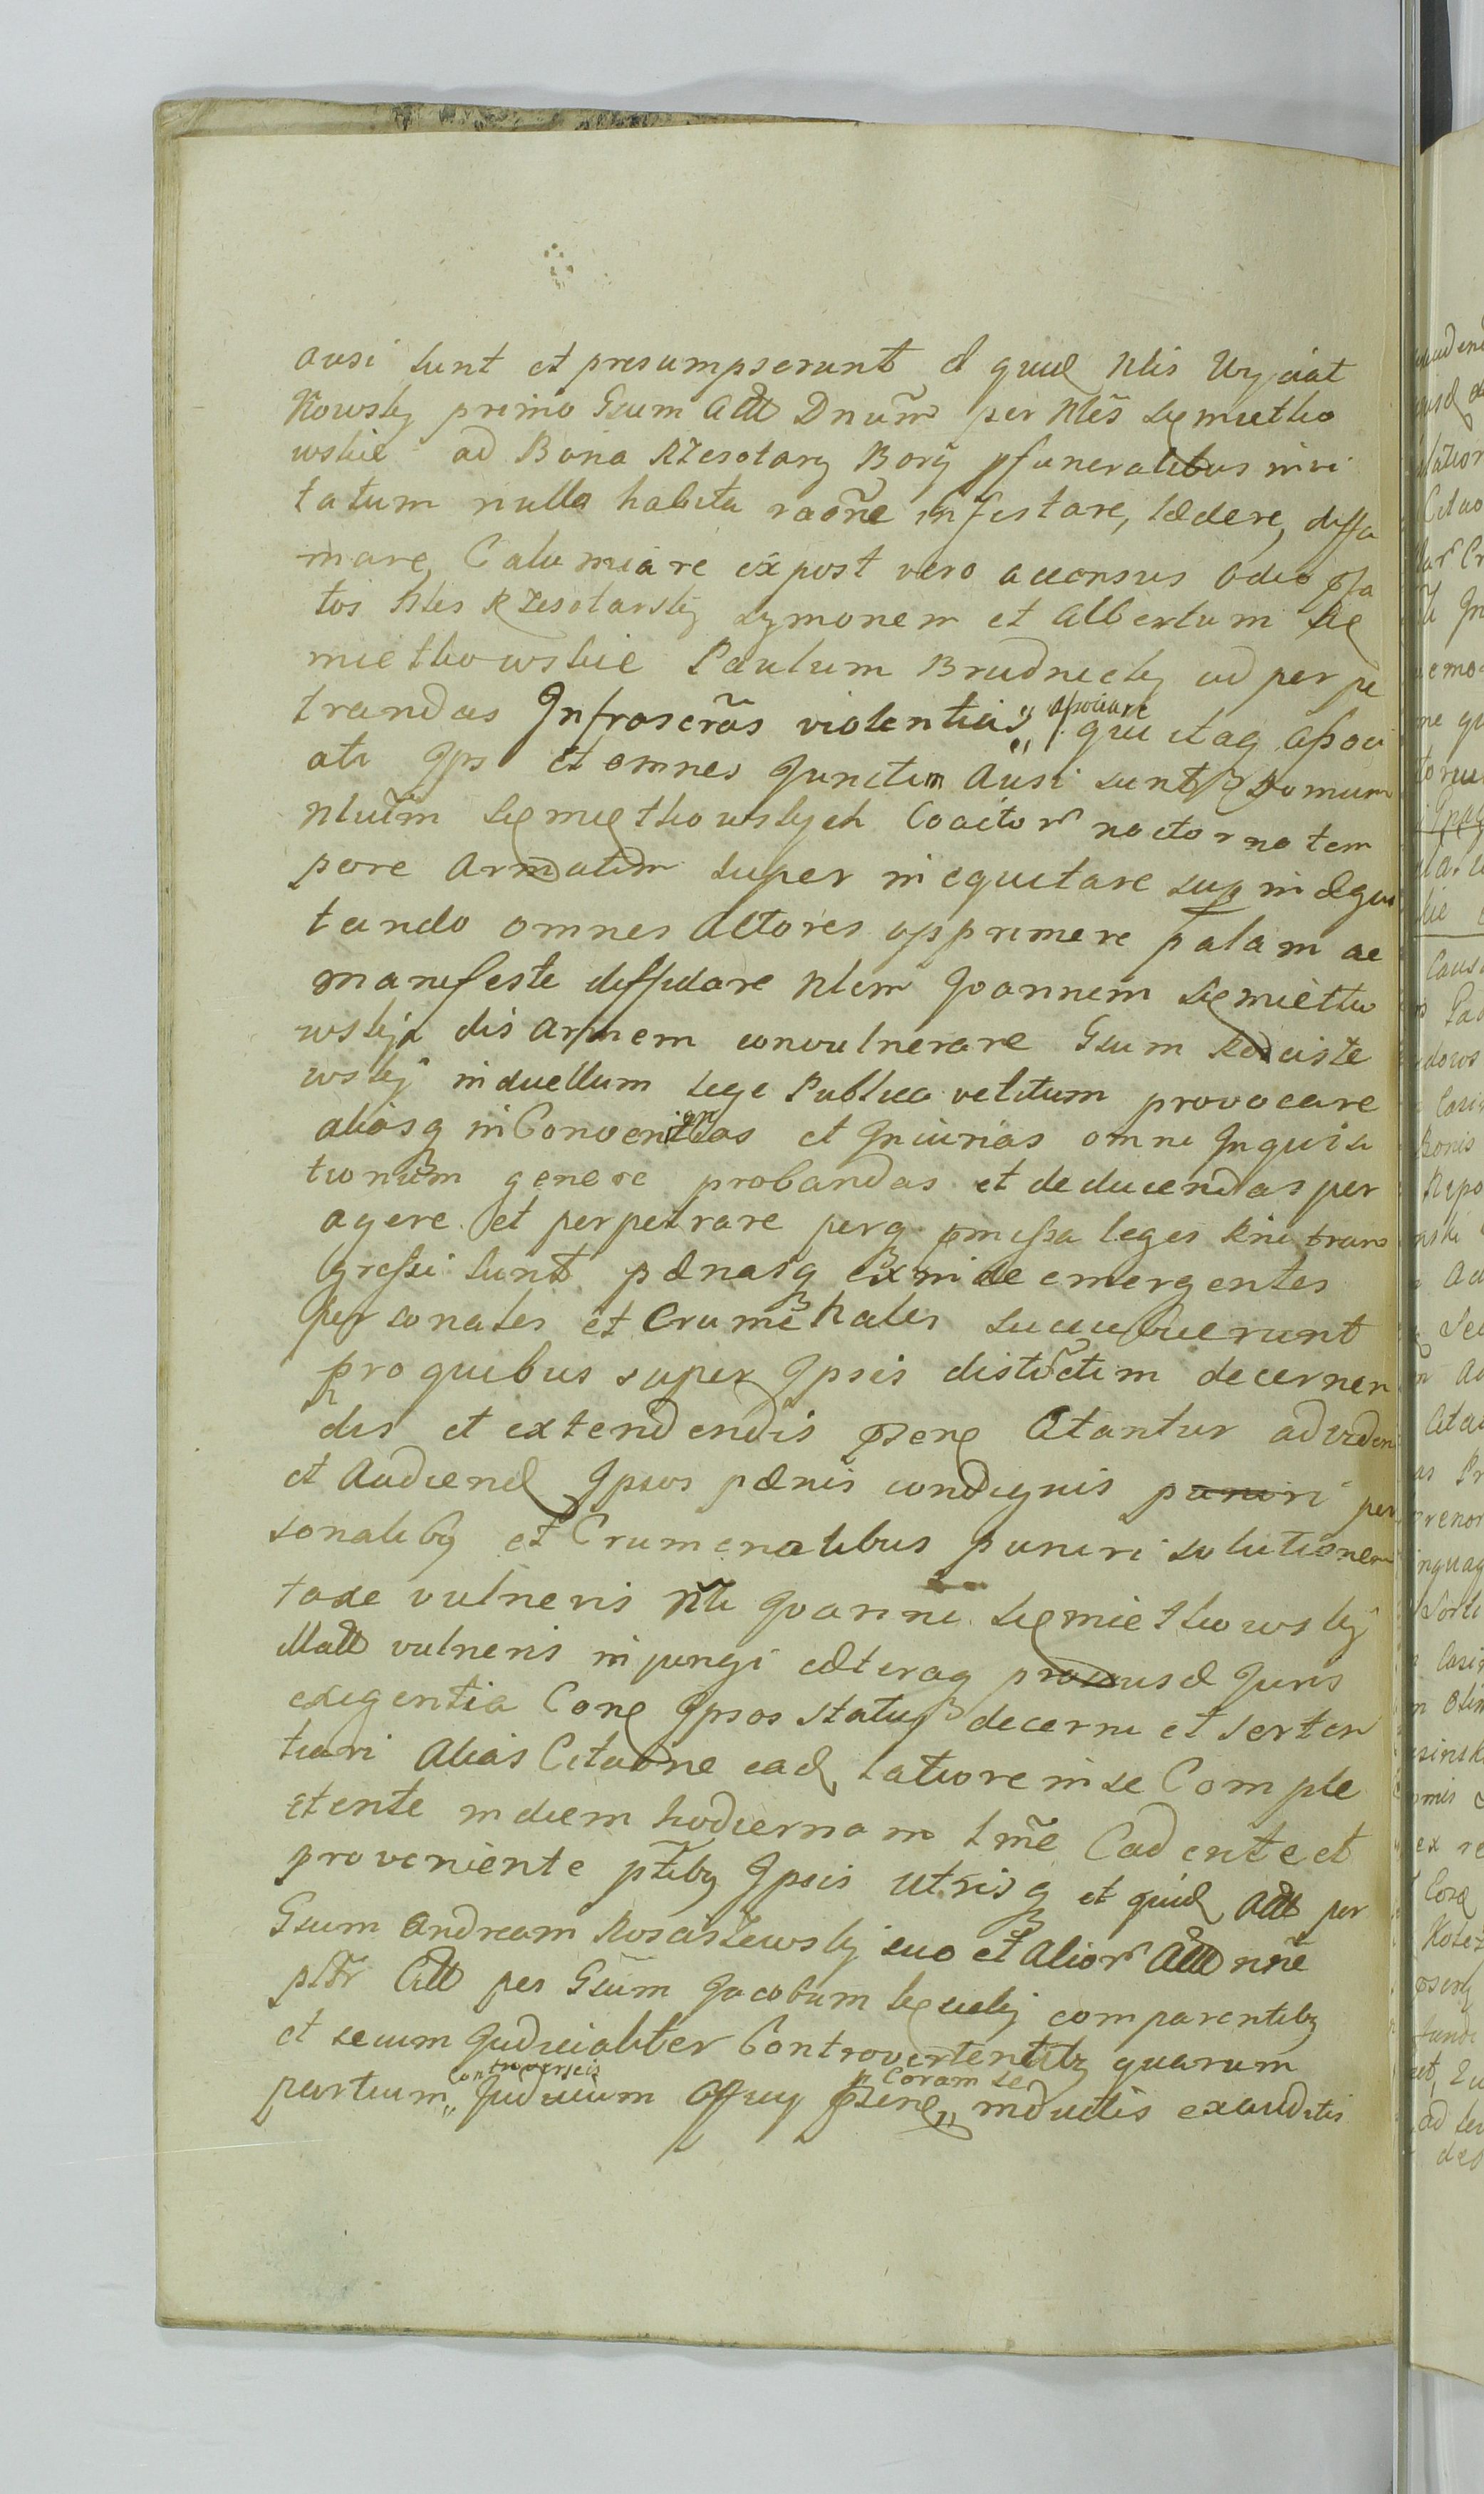 ausi sunt et presumpserunt et quid Nlis Wyciat
kowsky primo Gsum Act Dnum per Nles Siemietko
wskie ad Bona Rzeszotary Bory pfuneralibus invi
tatum nulla habita raone infestare, lædere, diffa
mare, Calumiare ex post vero accensus odio pfa
tos Nles Rzeszotarsky Symonem et Albertum Sie
mietkowskie Paulum Brudnicky ad perpe
trandas Infrascras violentias associare
qui itaq associ
ati Ips et omnes Junctim Ausi sunt Domum
Nluum Siemietkowskych Coactor noctorno tem
pore Armatim super inequitare sup inequi
tando omnes Actores opprimere palam ac
manifeste diffidare Nlem Joannem Siemietko
wskj disarmem convulnerare Gsum Roscisze
wskj induellum lege Publica vetitum provocare
aliasq inConvenientias et Iniurias omni Inquisi
tionum genere probandas et deducendas per
agere et perpetrare perq pmissa leges Rni trans
gressi sunt pænasq exinde emergentes
personales et Crumenales succubuerunt
pro quibus super Ipsis distrctim decernen
dis et extendendis Citantur ad viden
et Audiend Ipsos pænis condignis puniri per
sonalibq et Crumenalibus puniri solutionem
taxe vulneris Nli Joanni Siemietkowskj
illati vulneris injungi cæteraq pro causæ Juris
exigentia Cong Ipsos statui decerni et senten
tiari Alias Citaone ead latiore in se Comple
ctente in diem hodiernam tme Cadente et
proveniente ptibq Ipsis utrisq et quid Act per
Gsum Andream Rosciszewskj suo et Alior Act nne
pltr Citt per Gsum Jacobum comparentibq
et secum Judicialiter Controvertentibq quarum
partium controversis Judicium Offy coram se inductis exauditis